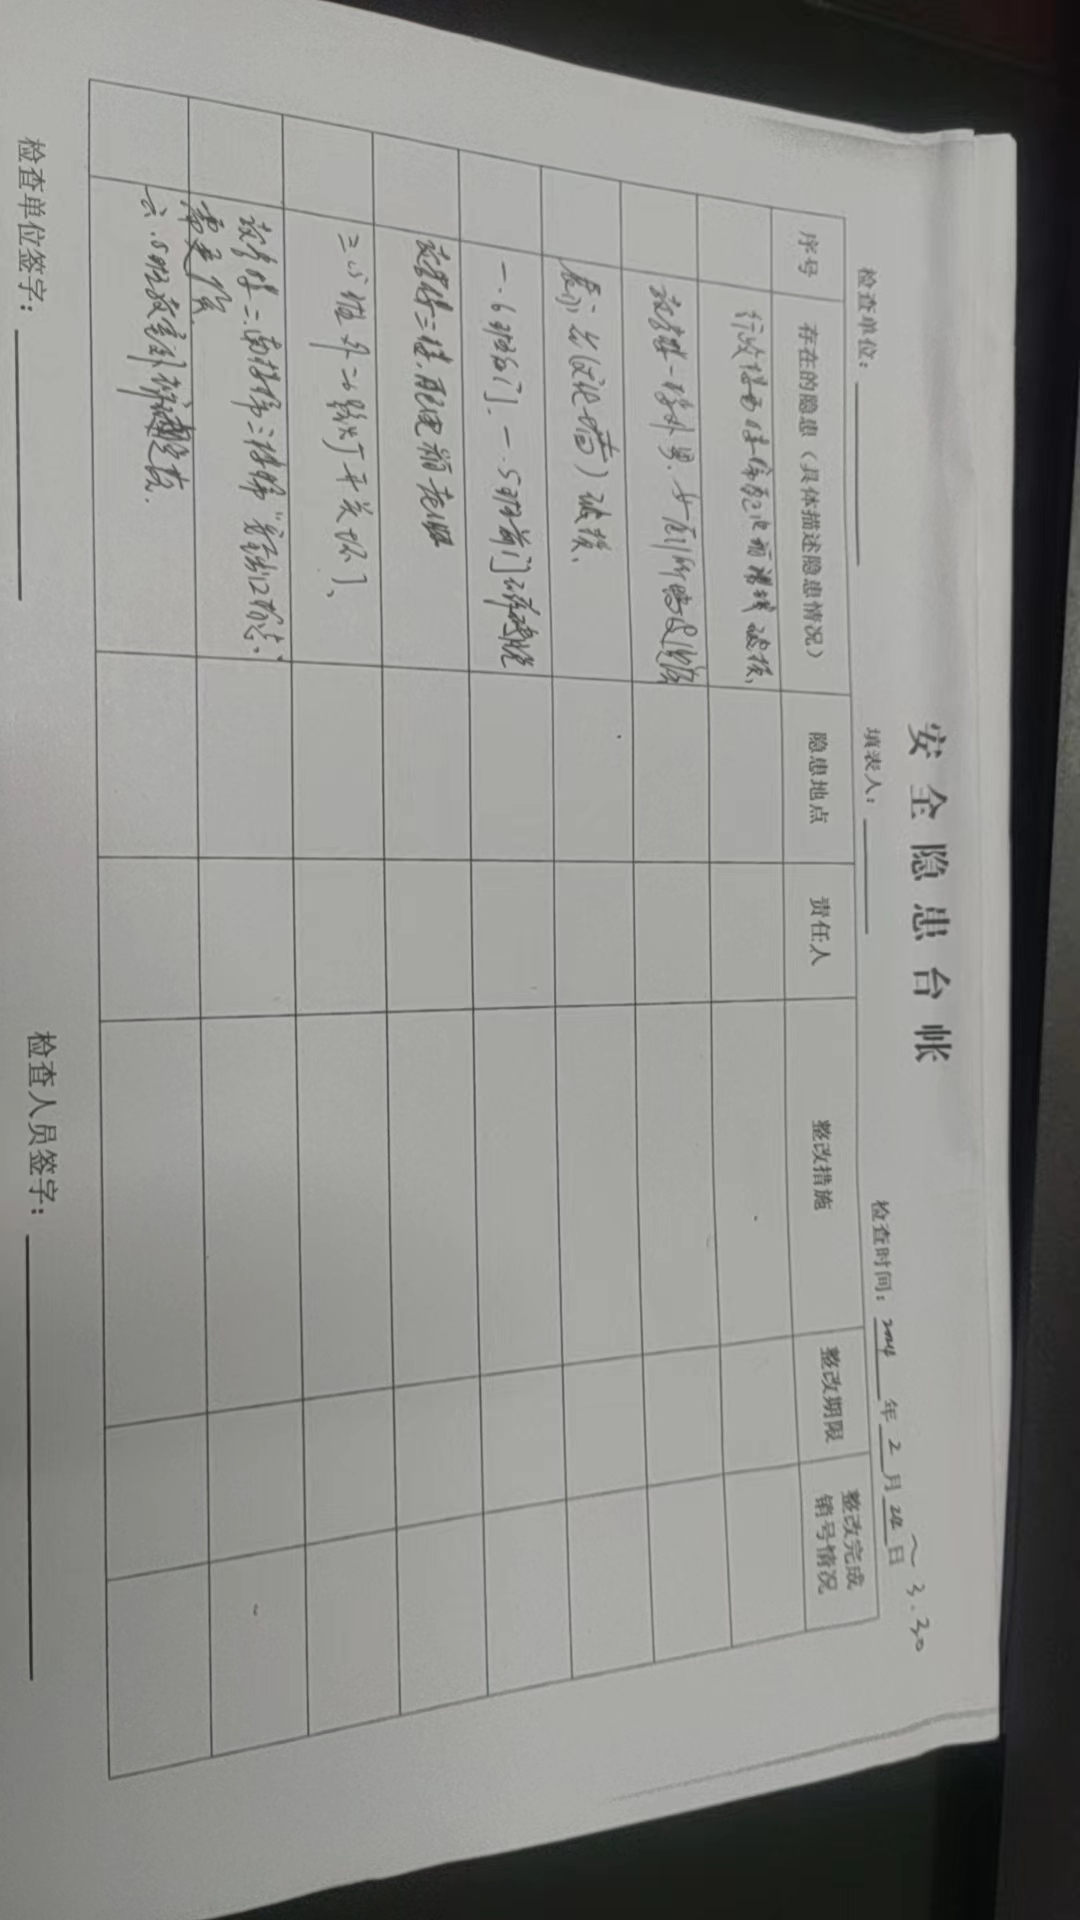 安全隐患台帐
检查单位：
填表人：
检查时间：2024年2月24日～3.30
序号
存在的隐患（具体描述隐患情况）
隐患地点
责任人
整改措施
整改期限
整改完成
销号情况
行政楼西楼 配电箱 破损、
教学楼一楼外男、女厕所
展示台（文化墙）破损、
一.6班后门.一.5班前门
教学楼二楼.配电箱
三.5班外 路灯开关坏了、
教学楼二、南楼梯三楼梯"安全出口"
需更换
六.5班教室
检查单位签字：
检查人员签字：